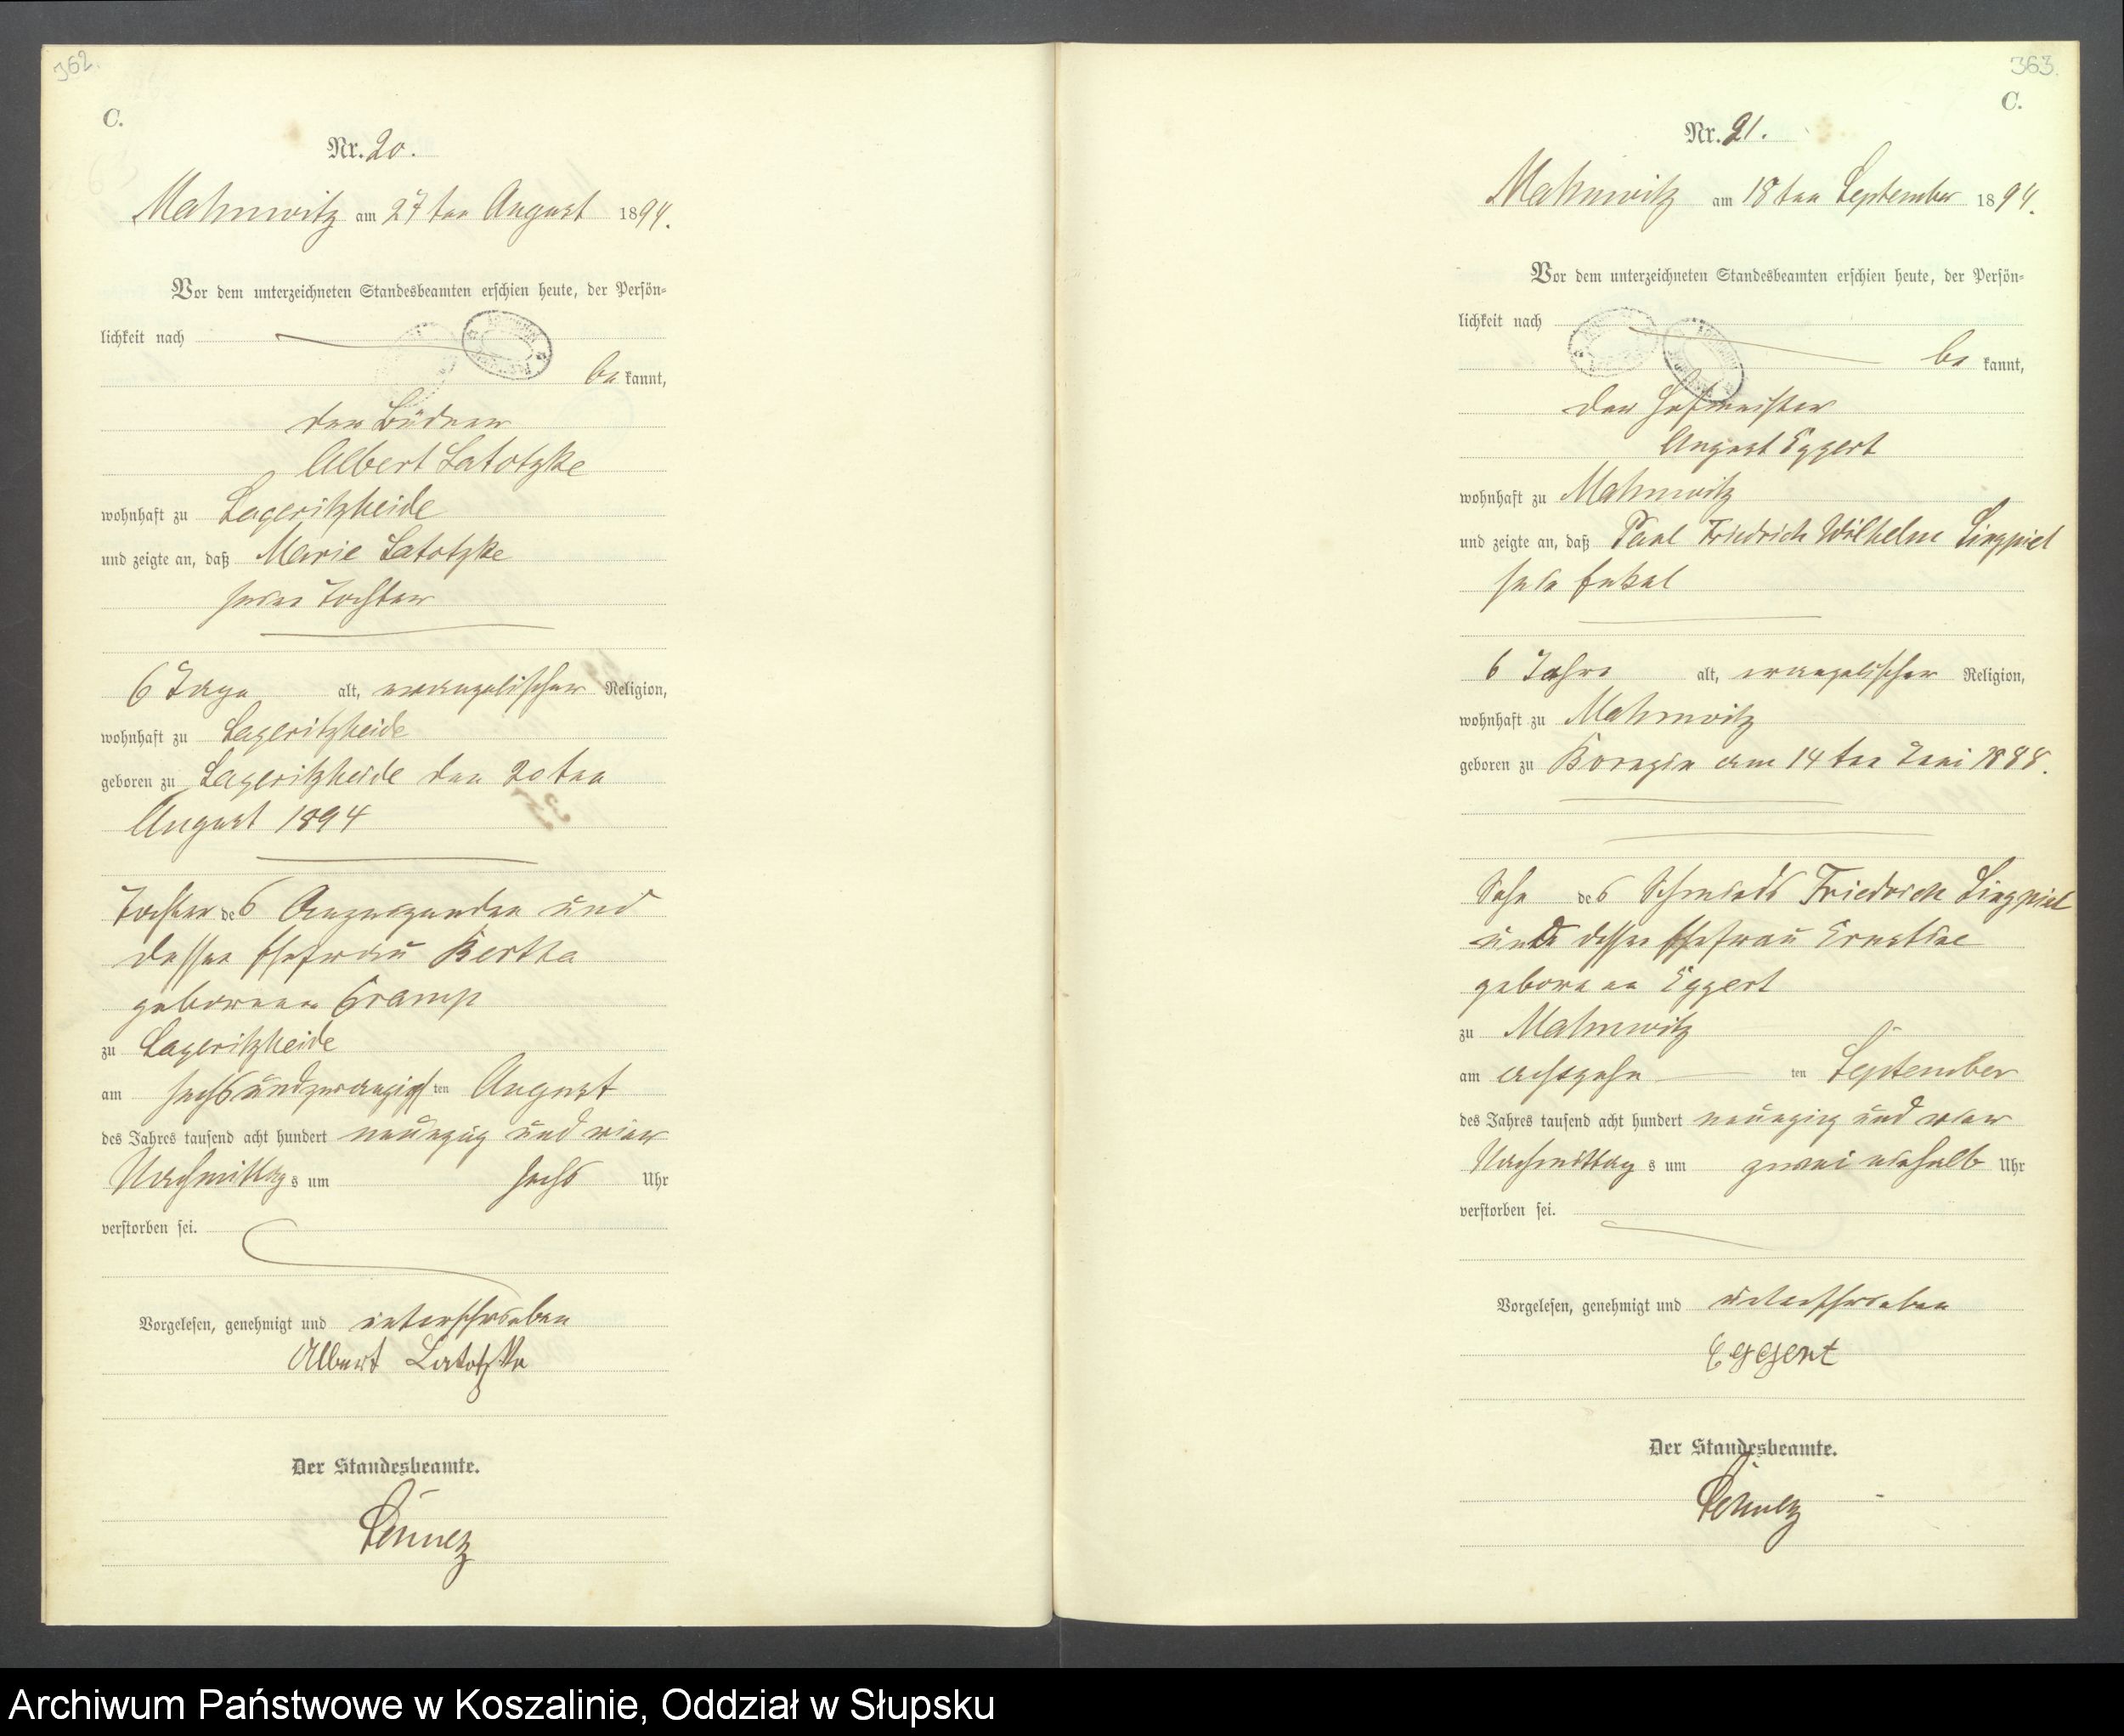 362.
C.
Nr. 20.
Mahnwitz am 27 ten August 1894.
Vor dem unterzeichneten Standesbeamten erschien heute, der Persön-
lichkeit nach
be kannt,
der Büdner
Albert Latotzke
wohnhaft zu Lageritzheide
und zeigte an, daß Marie Latotzke
seine Tochter
6 Tage alt, evangelischer Religion,
wohnhaft zu Lageritzheide
geboren zu Lageritzheide den 20 ten
August 1894
Tochter des Anzeigenden und
dessen Ehefrau Bertha
geborenen Gramp
zu Lageritzheide
am sechsundzwanzigsten August
des Jahres tausend acht hundert neunzig und vier
Nachmittags um sechs Uhr
verstorben sei.
Vorgelesen, genehmigt und unterschrieben
Albert Latotzke
Der Standesbeamte.
363.
C.
Nr. 21.
Mahnwitz am 18 ten September 1894.
Vor dem unterzeichneten Standesbeamten erschien heute, der Persön-
lichkeit nach
be kannt,
der Hofmeister
August Eggert
wohnhaft zu Mahnwitz
und zeigte an, daß Paul Friedrich Wilhelm Lingpiel
sein Enkel
6 Jahre alt, evangelischer Religion,
wohnhaft zu Mahnwitz
geboren zu am 14 ten Juni 1888.
Sohn des Schmieds Friedrich Lingpiel
und dessen Ehefrau Ernstine
geborenen Eggert
zu Mahnwitz
am achtzehn ten September
des Jahres tausend acht hundert neunzig und vier
Nachmittags um zwei einhalb Uhr
verstorben sei.
Vorgelesen, genehmigt und unterschrieben
Eggert
Der Standesbeamte.
Archiwum Państwowe w Koszalinie, Oddział w Słupsku